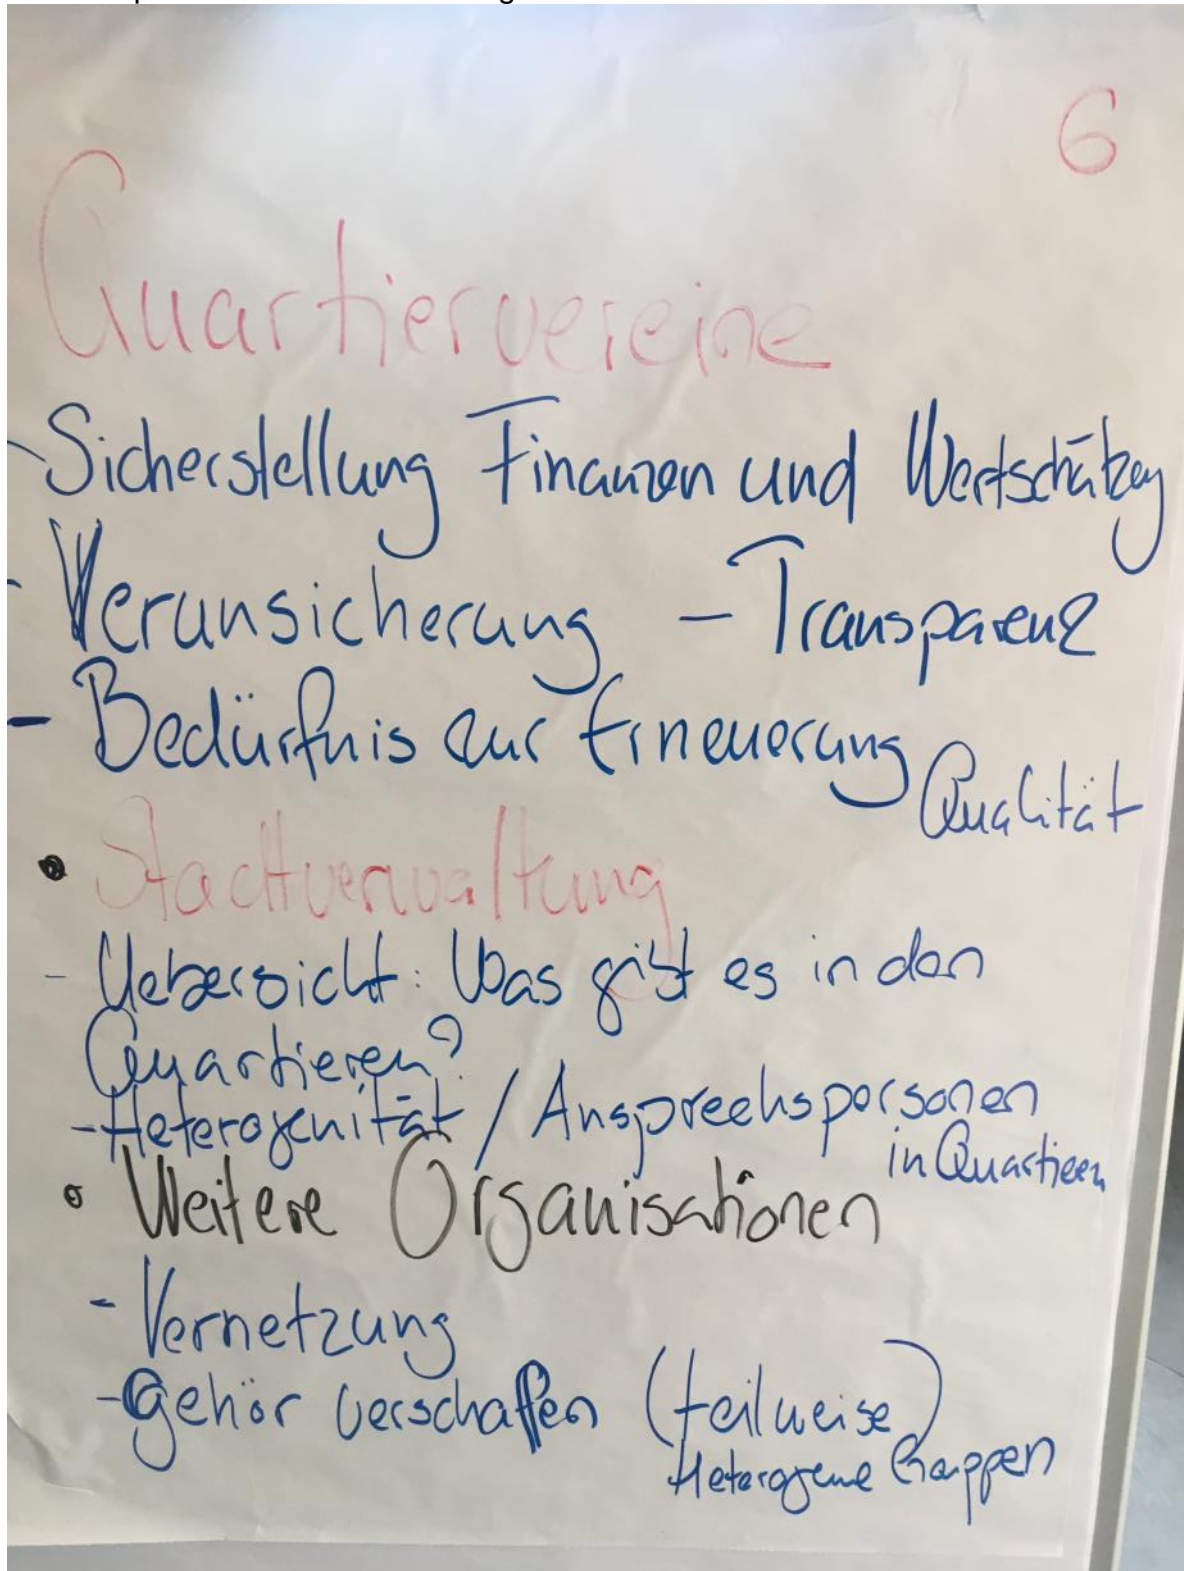 6
Quartiervereine
- Sicherstellung Finanzen und Wertschätzung
- Verunsicherung - Transparenz
- Bedürfnis zur Erneuerung
Qualität
• Stadtverwaltung
- Uebersicht: Was gibt es in den
Quartieren?
- Heterogenität / Ansprechspersonen
in Quartieren
• Weitere Organisationen
- Vernetzung
- gehör verschaffen (teilweise)
Heterogene Gruppen